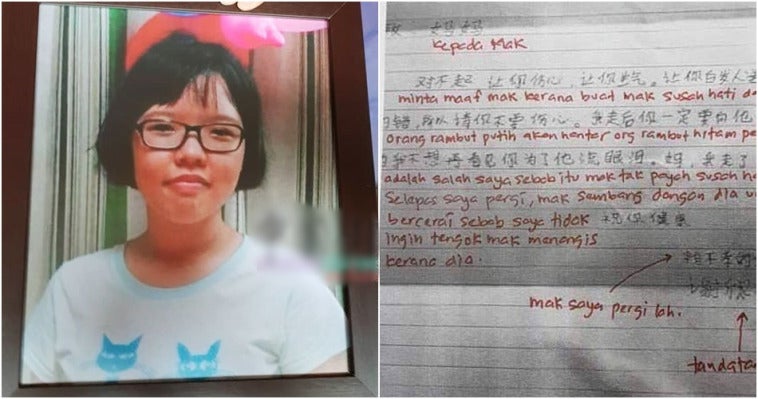 妈妈
Kepada Mak
对不起 让你伤心,让你生气。让你白发人
minta maaf mak kerana buat mak susah hati da
的错,所以请你不要伤心。我走后你一定要向他
Orang rambut putih akan hantar org rambut hitam pe
我不想再看见你为了他流眼泪。妈,我走了
adalah salah saya sebab itu mak tak payah susah ha
Selepas saya pergi, mak sembang dengan dia u
bercerai sebab saya tidak 祝你健康
ingin tengok mak menangis
kerana dia.
mak saya pergi lah.
tandata